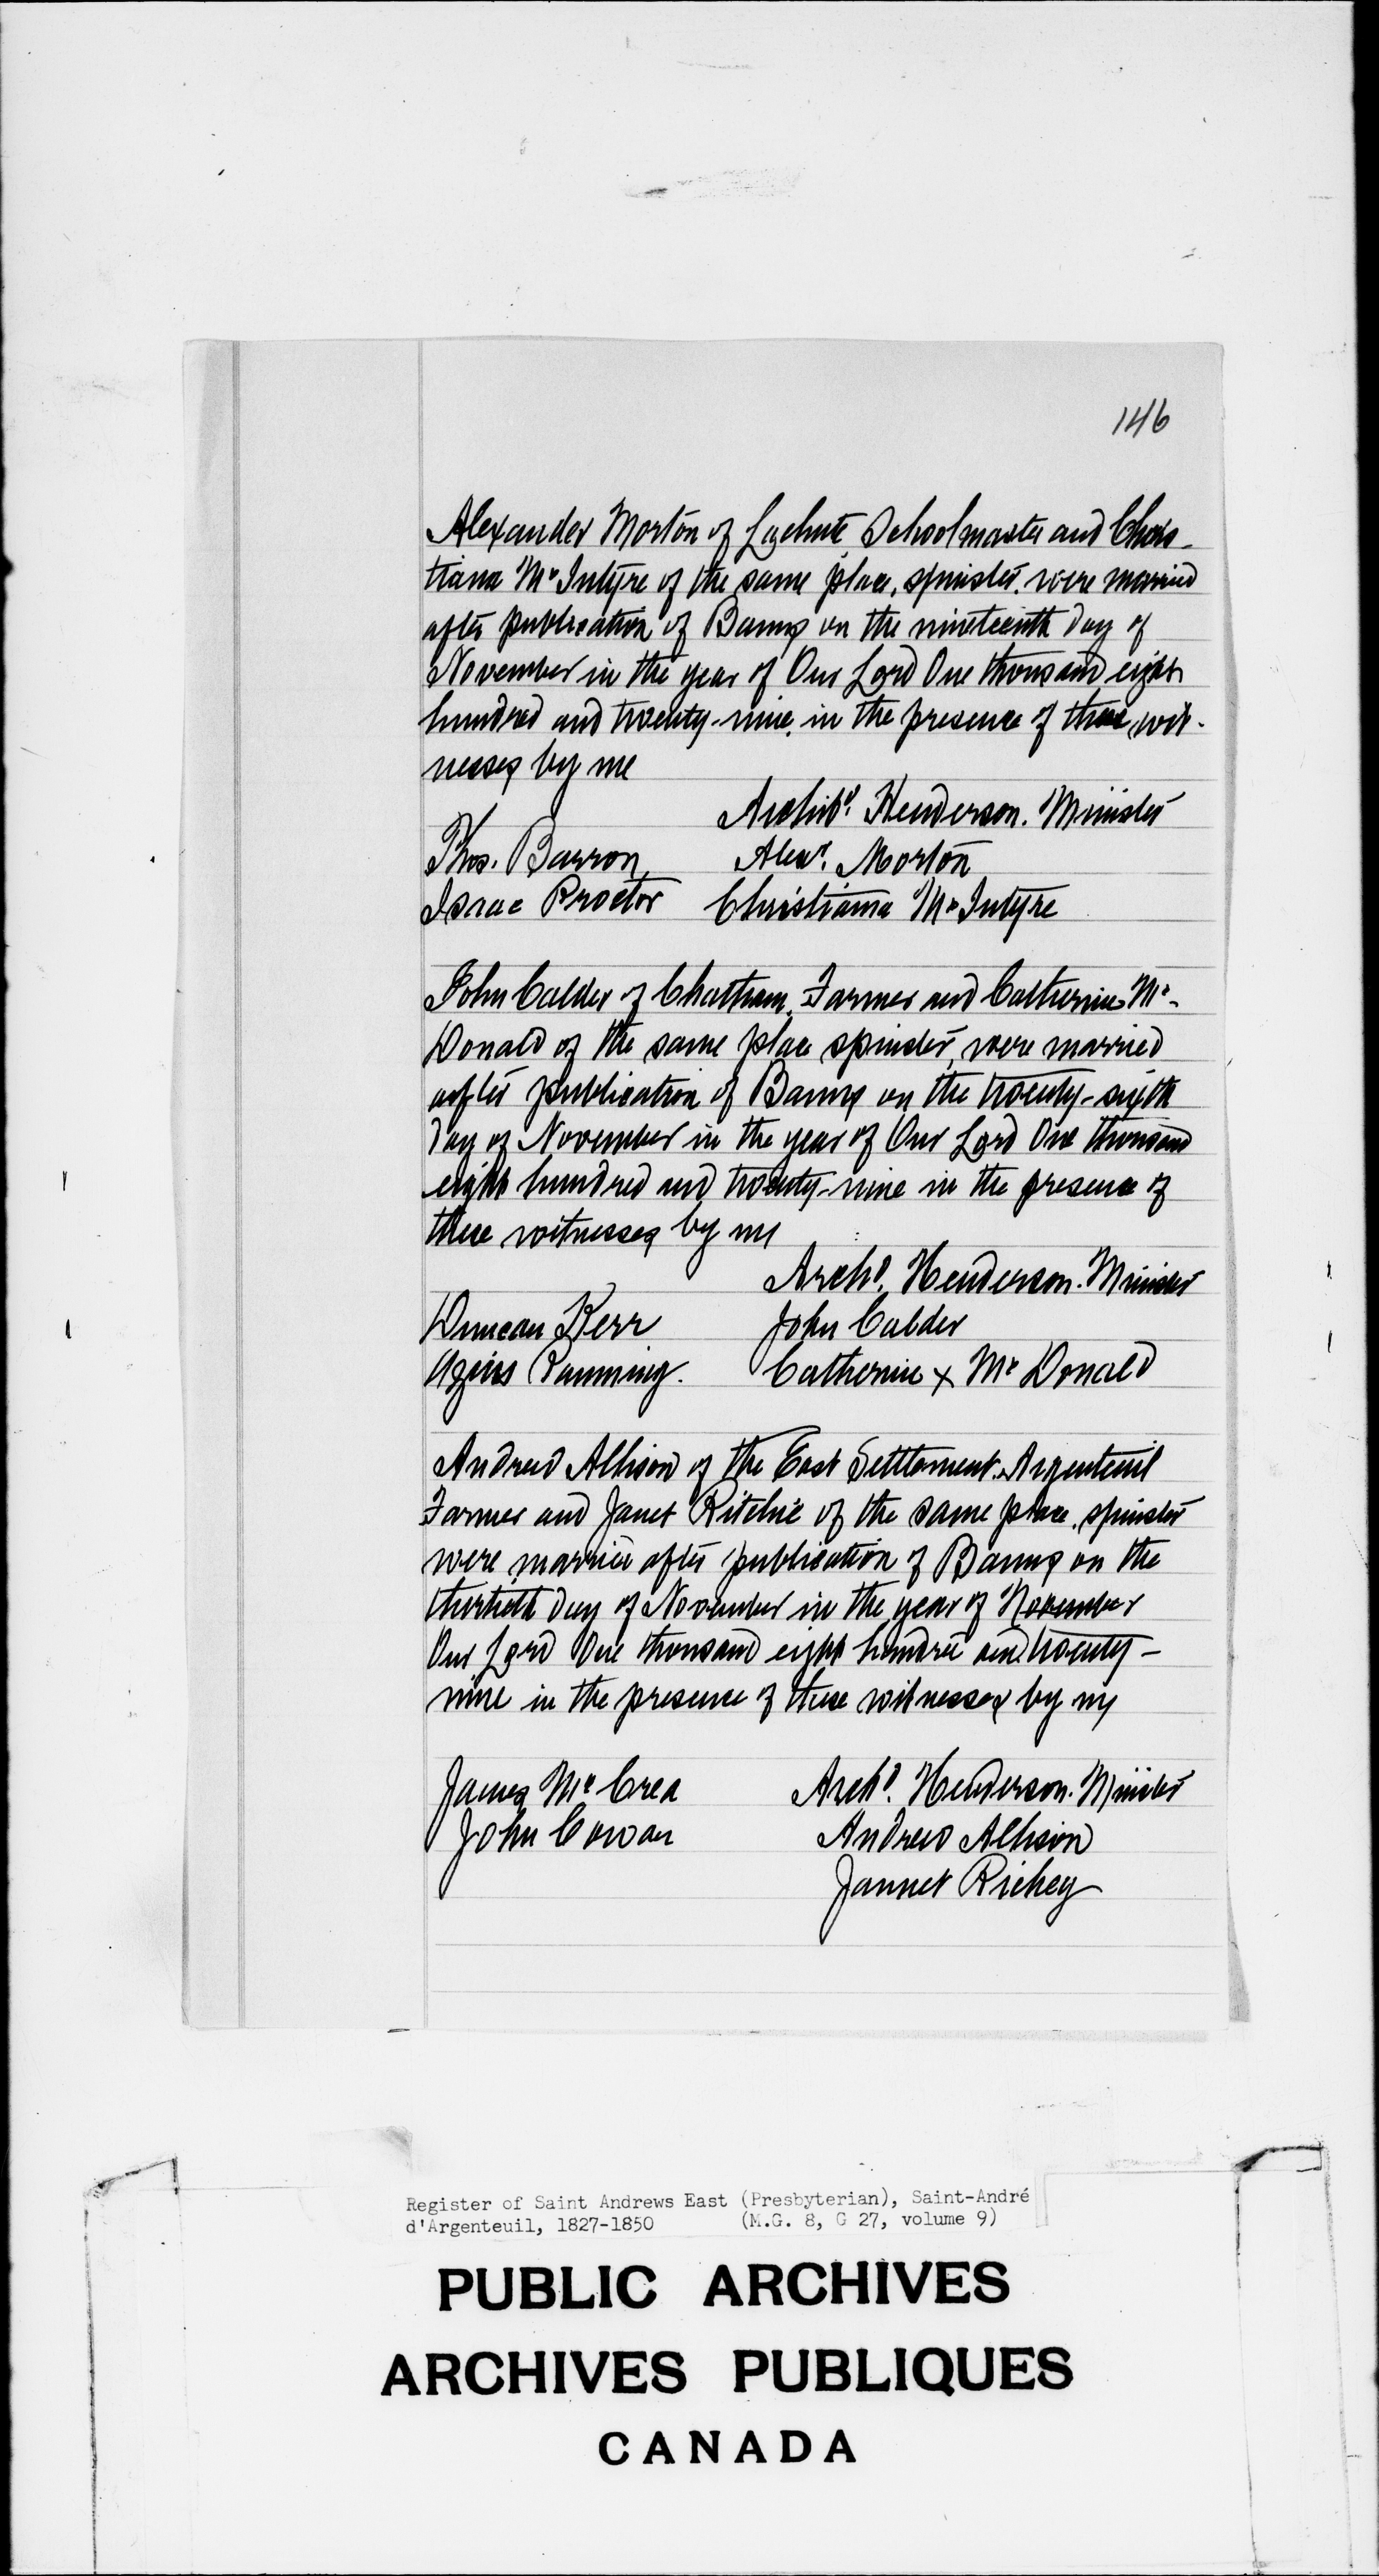 146
Alexander Morton of Lachute Schoolmaster and Chris-
tiana Mc Intyre of the same place, spinster, were married
after publication of Banns on the nineteenth day of
November in the year of Our Lord One thousand eight
hundred and twenty-nine, in the presence of these wit-
nesses by me
Archd. Henderson. Minister
Thos. Barron Alexr. Morton
Isaac Proctor Christiana Mc Intyre
John Calder of Chatham, Farmer and Catherine Mc-
Donald of the same place spinster, were married
after publication of Banns on the twenty-sixth
day of November in the year of Our Lord One thousand
eight hundred and twenty-nine in the presence of
these witnesses by me
Archd. Henderson. Minister
Duncan Kerr John Calder
Agnes Catherine x Mc Donald
Andrew Allison of the East Settlement. Argenteuil
Farmer and Janet Ritchie of the same place, spinster
were married after publication of Banns on the
thirtieth day of November in the year of November
Our Lord One thousand eight hundred and twenty-
nine in the presence of these witnesses by me
James Mc Crea Archd. Henderson. Minister
John Cowan Andrew Allison
Jannet Richey
Register of Saint Andrews East (Presbyterian), Saint-André
d'Argenteuil, 1827-1850 (M.G. 8, G 27, volume 9)
PUBLIC ARCHIVES
ARCHIVES PUBLIQUES
CANADA